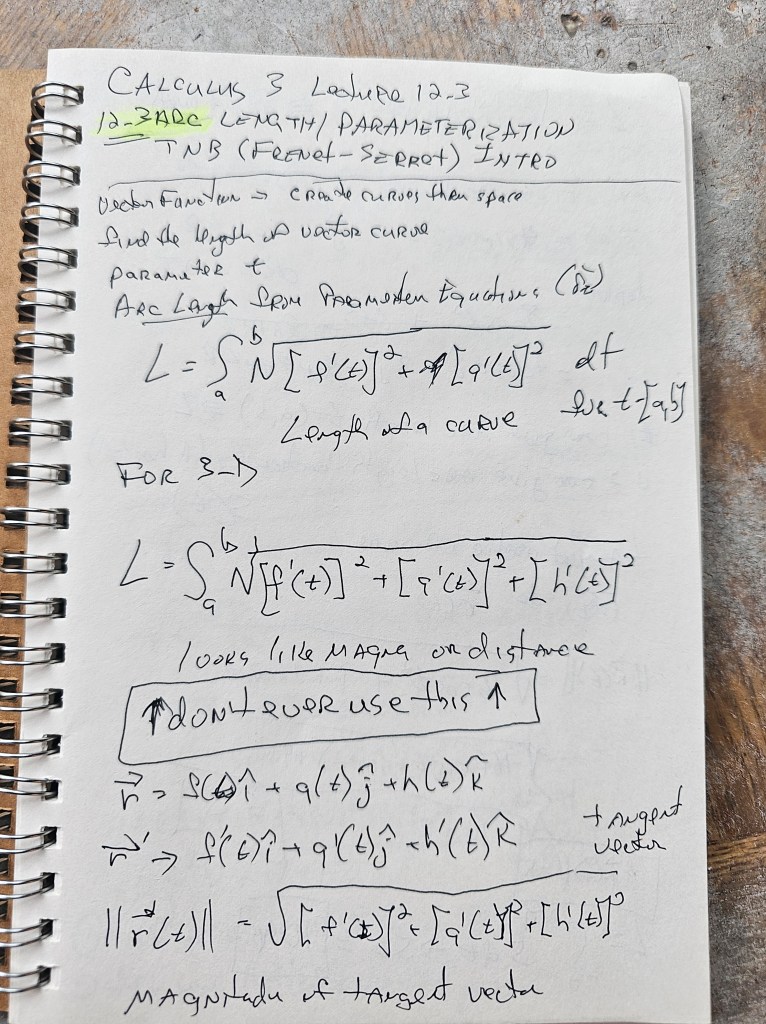 CALCULUS 3 Lecture 12.3
12.3 ARC LENGTH/PARAMETERIZATION
TNB (FRENET-SERRET) INTRO
Vector Function → create curves thru space
find the length of vector curve
parameter t
ARC Length from Parameter Equations
L = ∫ₐᵇ √[f'(t)]² + [g'(t)]² dt
t-[a,b]
Length of a curve
FOR 3-D
L = ∫ₐᵇ √[f'(t)]² + [g'(t)]² + [h'(t)]²
looks like MAGNI or distance
↑ don't ever use this ↑
r⃗ = f(t)î + g(t)ĵ + h(t)k̂
r⃗' → f'(t)î + g'(t)ĵ + h'(t)k̂ tangent vector
||r⃗'(t)|| = √[f'(t)]² + [g'(t)]² + [h'(t)]²
MAGNitude of tangent vector